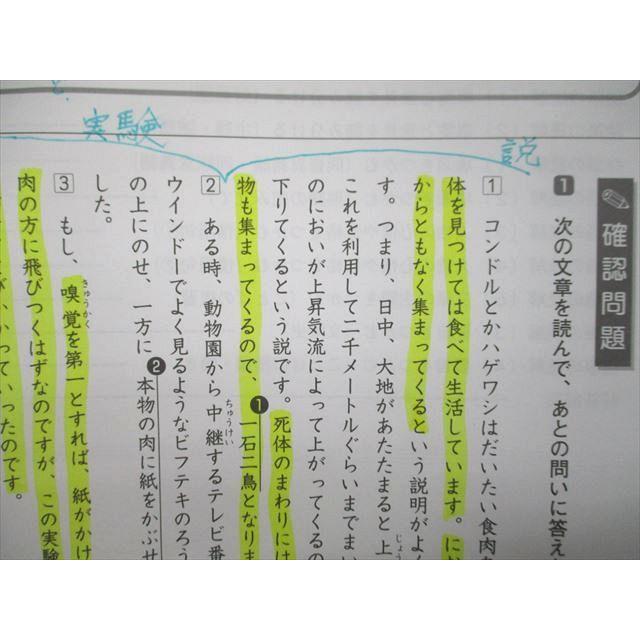 確認問題
1 次の文章を読んで、あとの問いに答え
説
実験
と、
1 コンドルとかハゲワシはだいたい食肉を
体を見つけては食べて生活しています。にお
からともなく集まってくるという説明がよく
す。つまり、日中、大地があたたまると上
じょう
これを利用して二千メートルぐらいまでまい
のにおいが上昇気流によって上がってくるの
下りてくるという説です。死体のまわりには
物も集まってくるので、❶一石二鳥となりま
2 ある時、動物園から中継するテレビ番
ちゅうけい
ウインドーでよく見るようなビフテキのろう
の上にのせ、一方に❷本物の肉に紙をかぶせ
した。
3 もし、嗅覚を第一とすれば、紙がかけ
きゅうかく
肉の方に飛びつくはずなのですが、この実験
かっていったのです。